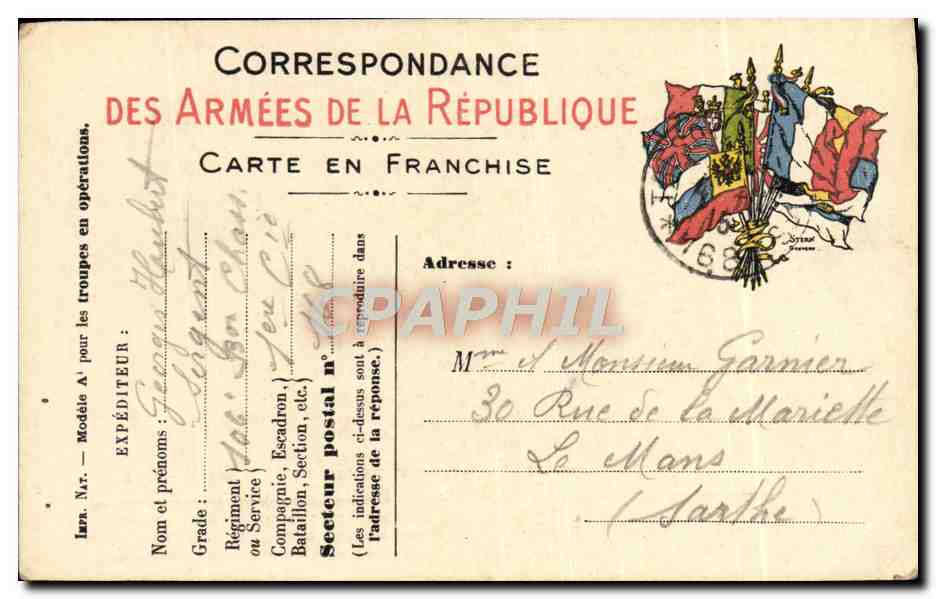 CORRESPONDANCE
DES ARMÉES DE LA RÉPUBLIQUE
CARTE EN FRANCHISE
IMPR. NAT. — Modèle A¹ pour les troupes en opérations.
EXPÉDITEUR :
Nom et prénoms : Georges Haubert
Grade : Sergent
Régiment
ou Service } 106e Bon Chass.
Compagnie, Escadron,
Bataillon, Section, etc. } 1ere Cie
Secteur postal n° 118
(Les indications ci-dessus sont à reproduire dans
l'adresse de la réponse.)
STERN
Adresse :
Mme & Monsieur Garnier
30 Rue de la Mariette
Le Mans
(Sarthe)
CPAPHIL